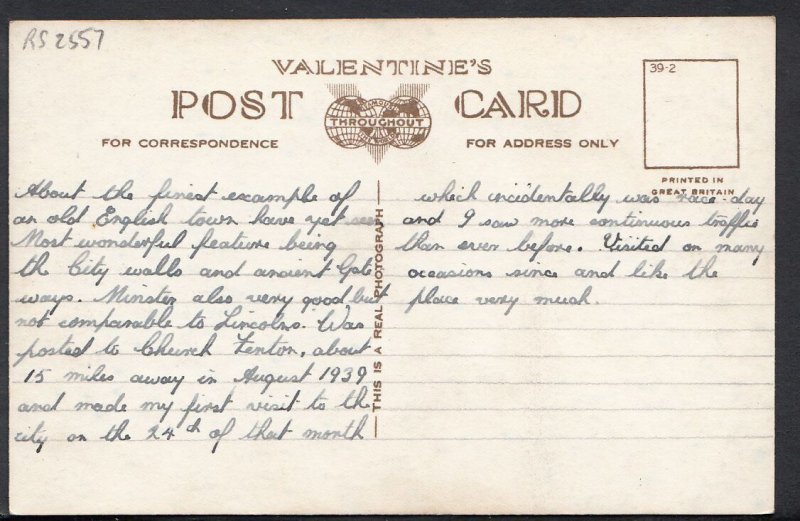 RS 2557
VALENTINE'S
POST CARD
THROUGHOUT
FOR CORRESPONDENCE
FOR ADDRESS ONLY
39-2
PRINTED IN
GREAT BRITAIN
About the finest example of
an old English town have yet seen
Most wonderful feature being
the City walls and ancient Gate
ways. Minster also very good but
not comparable to Lincolns. Was
posted to Church Fenton, about
15 miles away in August 1939
and made my first visit to the
city on the 24th of that month
THIS IS A REAL PHOTOGRAPH
which incidentally was race-day
and I saw more continuous traffic
than ever before. Visited on many
occasions since and like the
place very much.